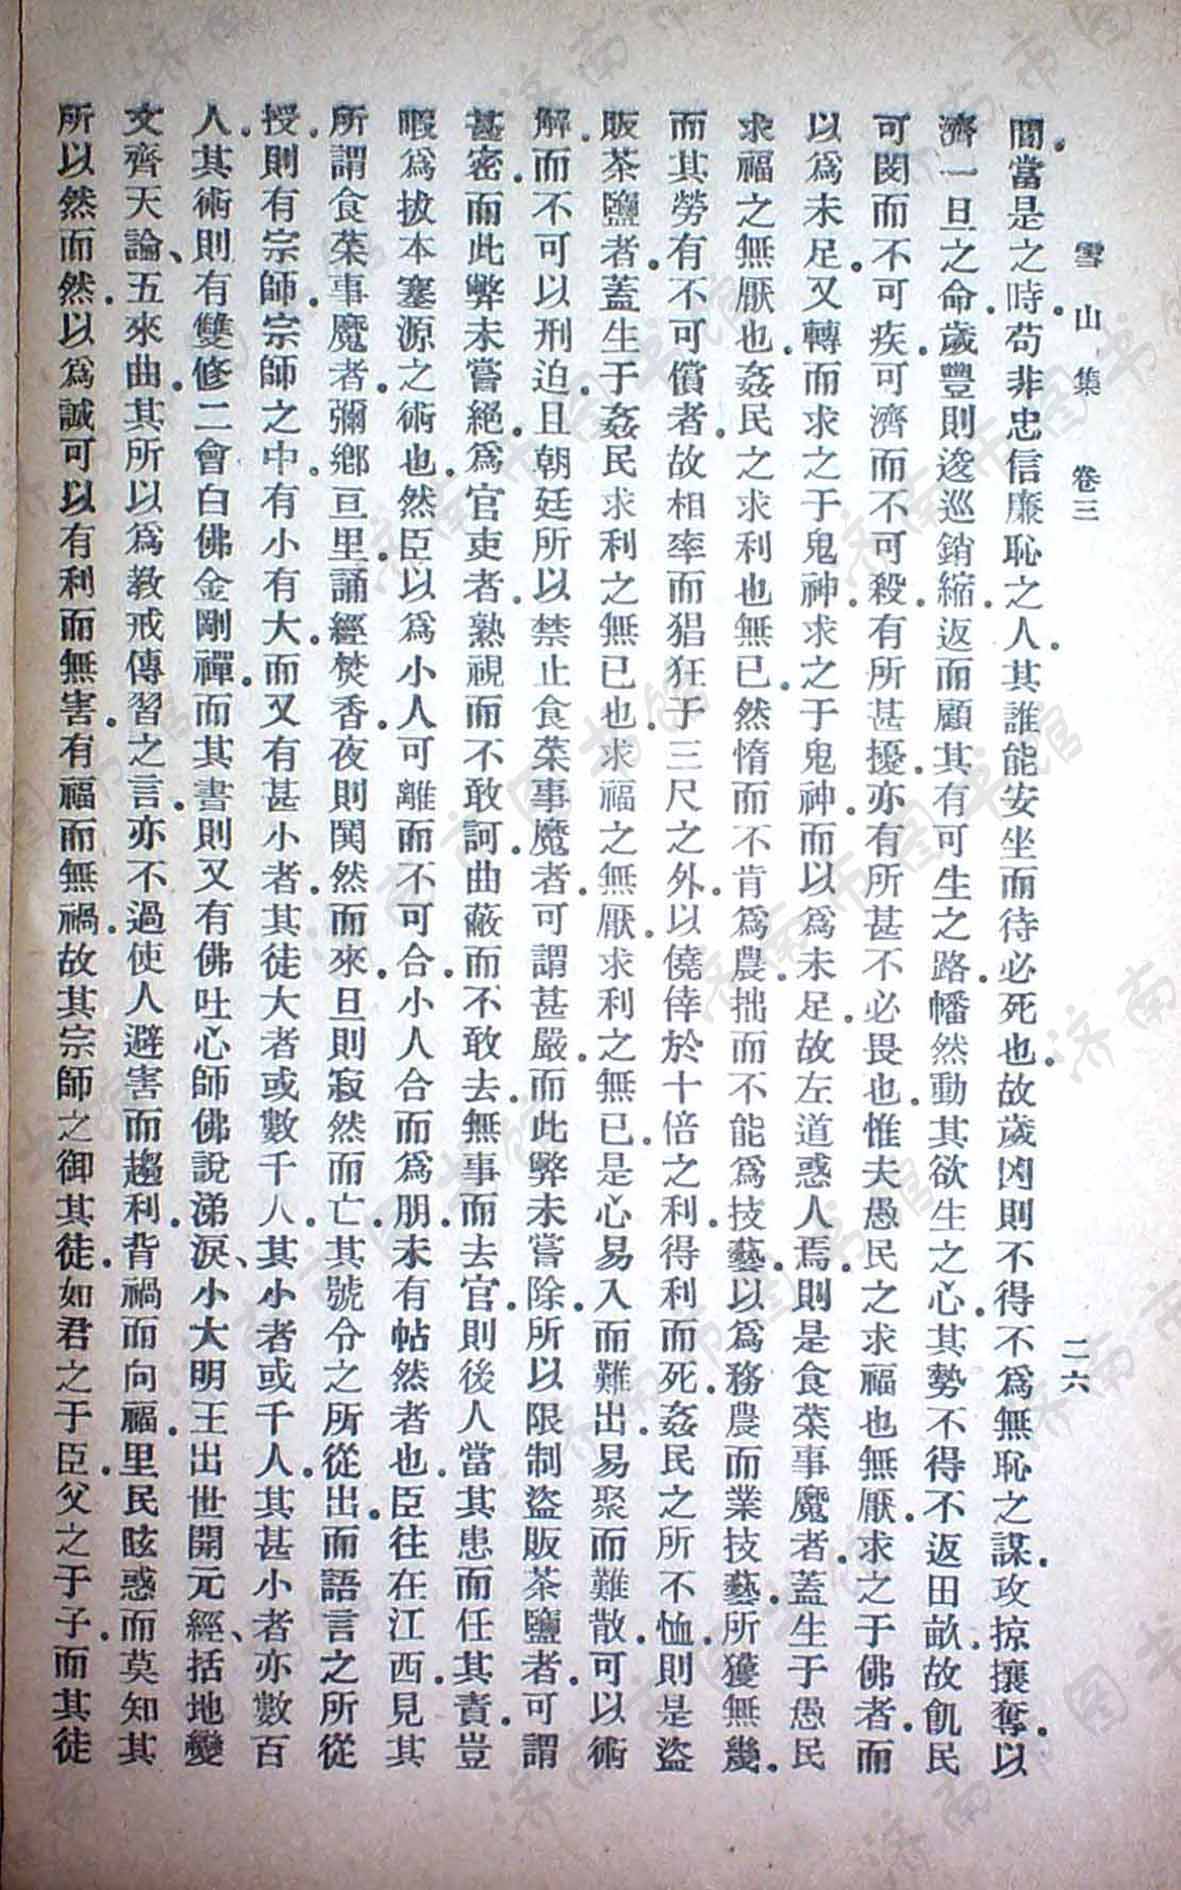 雪山集　卷三　二六
間。當是之時。苟非忠信廉恥之人。其誰能安坐而待必死也。故歲凶則不得不爲無恥之謀。攻掠攘奪。以
濟一旦之命。歲豐則逡巡銷縮。返而顧其有可生之路。幡然動其欲生之心。其勢不得不返田畝。故飢民
可閔而不可疾。可濟而不可殺。有所甚擾。亦有所甚不必畏也。惟夫愚民之求福也無厭。求之于佛者。而
以爲未足。又轉而求之于鬼神。求之于鬼神。而以爲未足。故左道惑人焉。則是食菜事魔者。蓋生于愚民
求福之無厭也。姦民之求利也無已。然惰而不肯爲農。拙而不能爲技藝。以爲務農而業技藝。所獲無幾。
而其勞有不可償者。故相率而猖狂于三尺之外。以僥倖於十倍之利。得利而死。姦民之所不恤。則是盜
販茶鹽者。蓋生于姦民求利之無已也。求福之無厭。求利之無已。是心易入而難出。易聚而難散。可以術
解。而不可以刑迫。且朝廷所以禁止食菜事魔者。可謂甚嚴。而此弊未嘗除。所以限制盜販茶鹽者。可謂
甚密。而此弊未嘗絕。爲官吏者。熟視而不敢訶。曲蔽而不敢去。無事而去官。則後人當其患而任其責。豈
暇爲拔本塞源之術也。然臣以爲小人可離而不可合。小人合而爲朋。未有帖然者也。臣往在江西。見其
所謂食菜事魔者。彌鄉亘里。誦經焚香。夜則鬨然而來。旦則寂然而亡。其號令之所從出。而語言之所從
授。則有宗師。宗師之中。有小有大。而又有甚小者。其徒大者或數千人。其小者或千人。其甚小者亦數百
人。其術則有雙修二會白佛金剛禪。而其書則又有佛吐心師佛說涕淚、小大明王出世開元經、括地變
文齊天論、五來曲。其所以爲教戒傳習之言。亦不過使人避害而趨利。背禍而向福。里民眩惑而莫知其
所以然而然。以爲誠可以有利而無害。有福而無禍。故其宗師之御其徒。如君之于臣。父之于子。而其徒